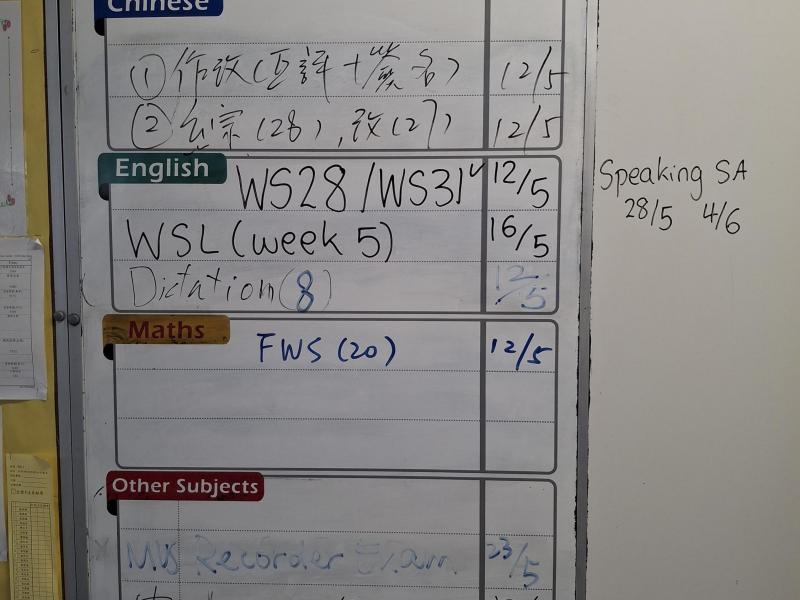 Chinese
① 作改(互評+簽名) 12/5
② (28), 改(27) 12/5
English
WS28/WS31 12/5
WSL (week 5) 16/5
Dictation (8) 12/5
Maths
FWS (20) 12/5
Other Subjects
MUS Recorder Exam 23/5
Speaking SA
28/5 4/6